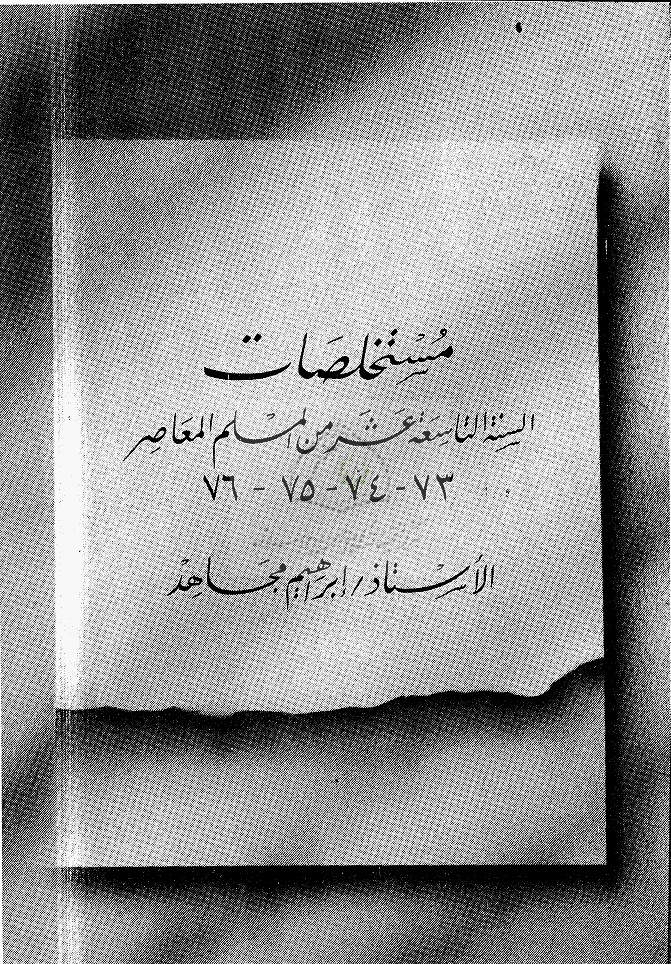 مُسْتَخلصَات
السنة التاسِعَة عَشَر من المسْلم المعَاصِر
٧٣ - ٧٤ - ٧٥ - ٧٦
الأسْتاذ / إبراهيم مجَاهِدْ